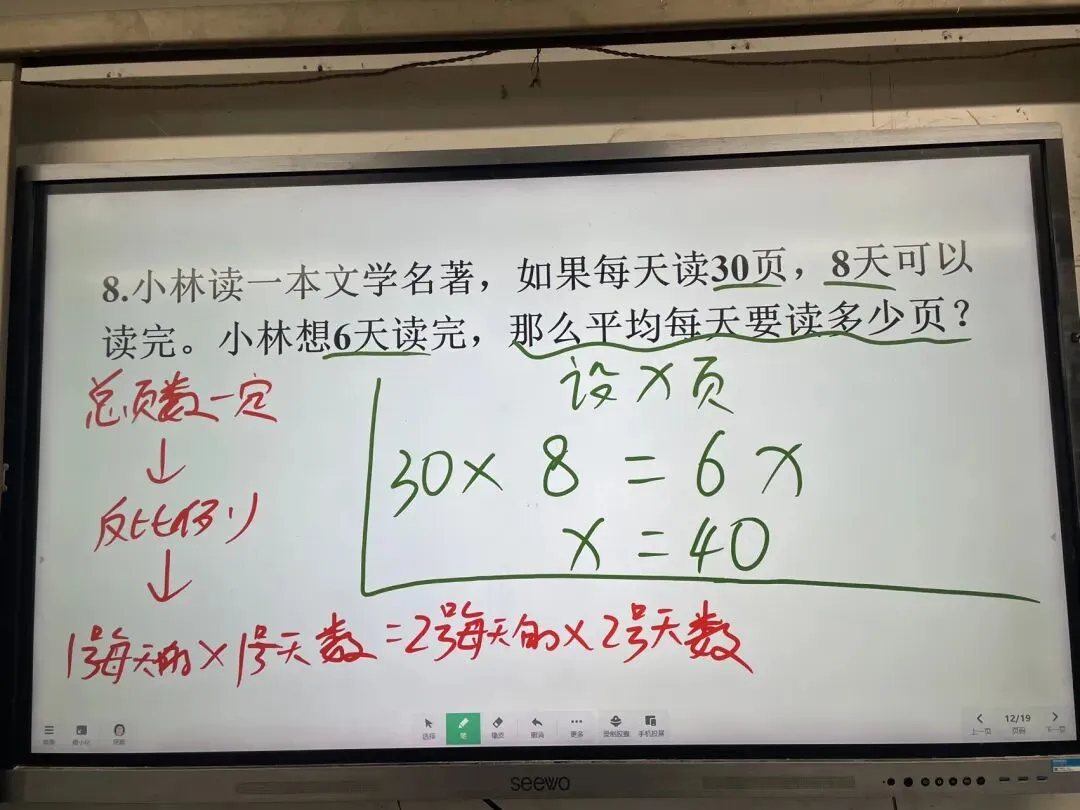 8.小林读一本文学名著，如果每天读30页，8天可以
读完。小林想6天读完，那么平均每天要读多少页？
总页数一定
↓
反比例
↓
1号每天的×1号天数=2号每天的×2号天数
设x页
30×8=6x
x=40
选择
笔
橡皮
撤消
更多
手机投屏
上一页
12/19
页码
下一页
seewo